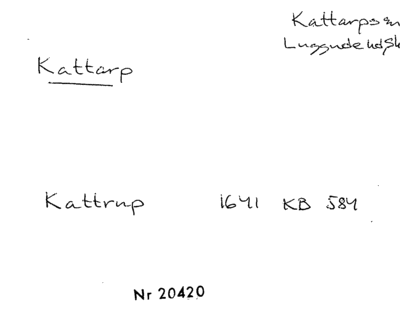 Kattarps sn
Luggude hd Sk
Kattarp
Kattrup 1641 KB 584
Nr 20420